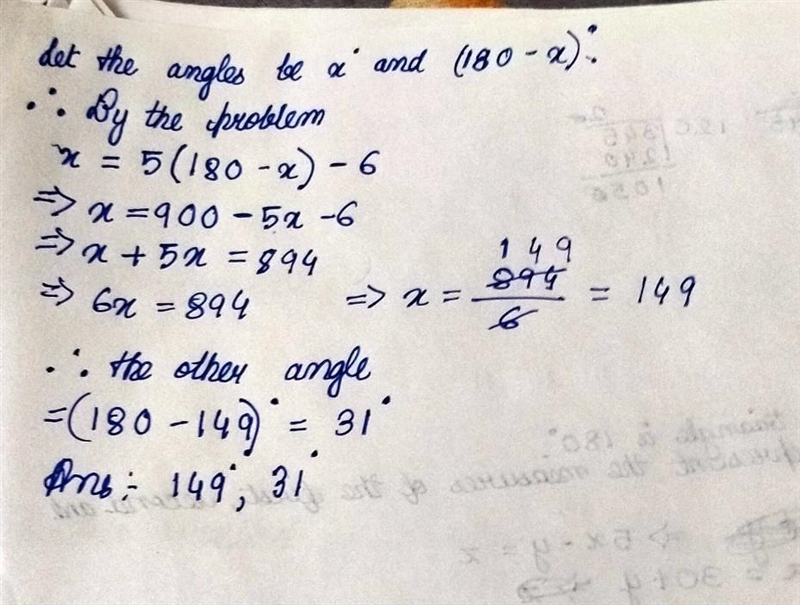 Let the angles be x° and (180 - x)°.
∴ By the problem
x = 5(180 - x) - 6
⇒ x = 900 - 5x - 6
⇒ x + 5x = 894
⇒ 6x = 894 ⇒ x = 894/6 = 149
149
∴ the other angle
= (180 - 149)° = 31°
Ans:- 149°, 31°